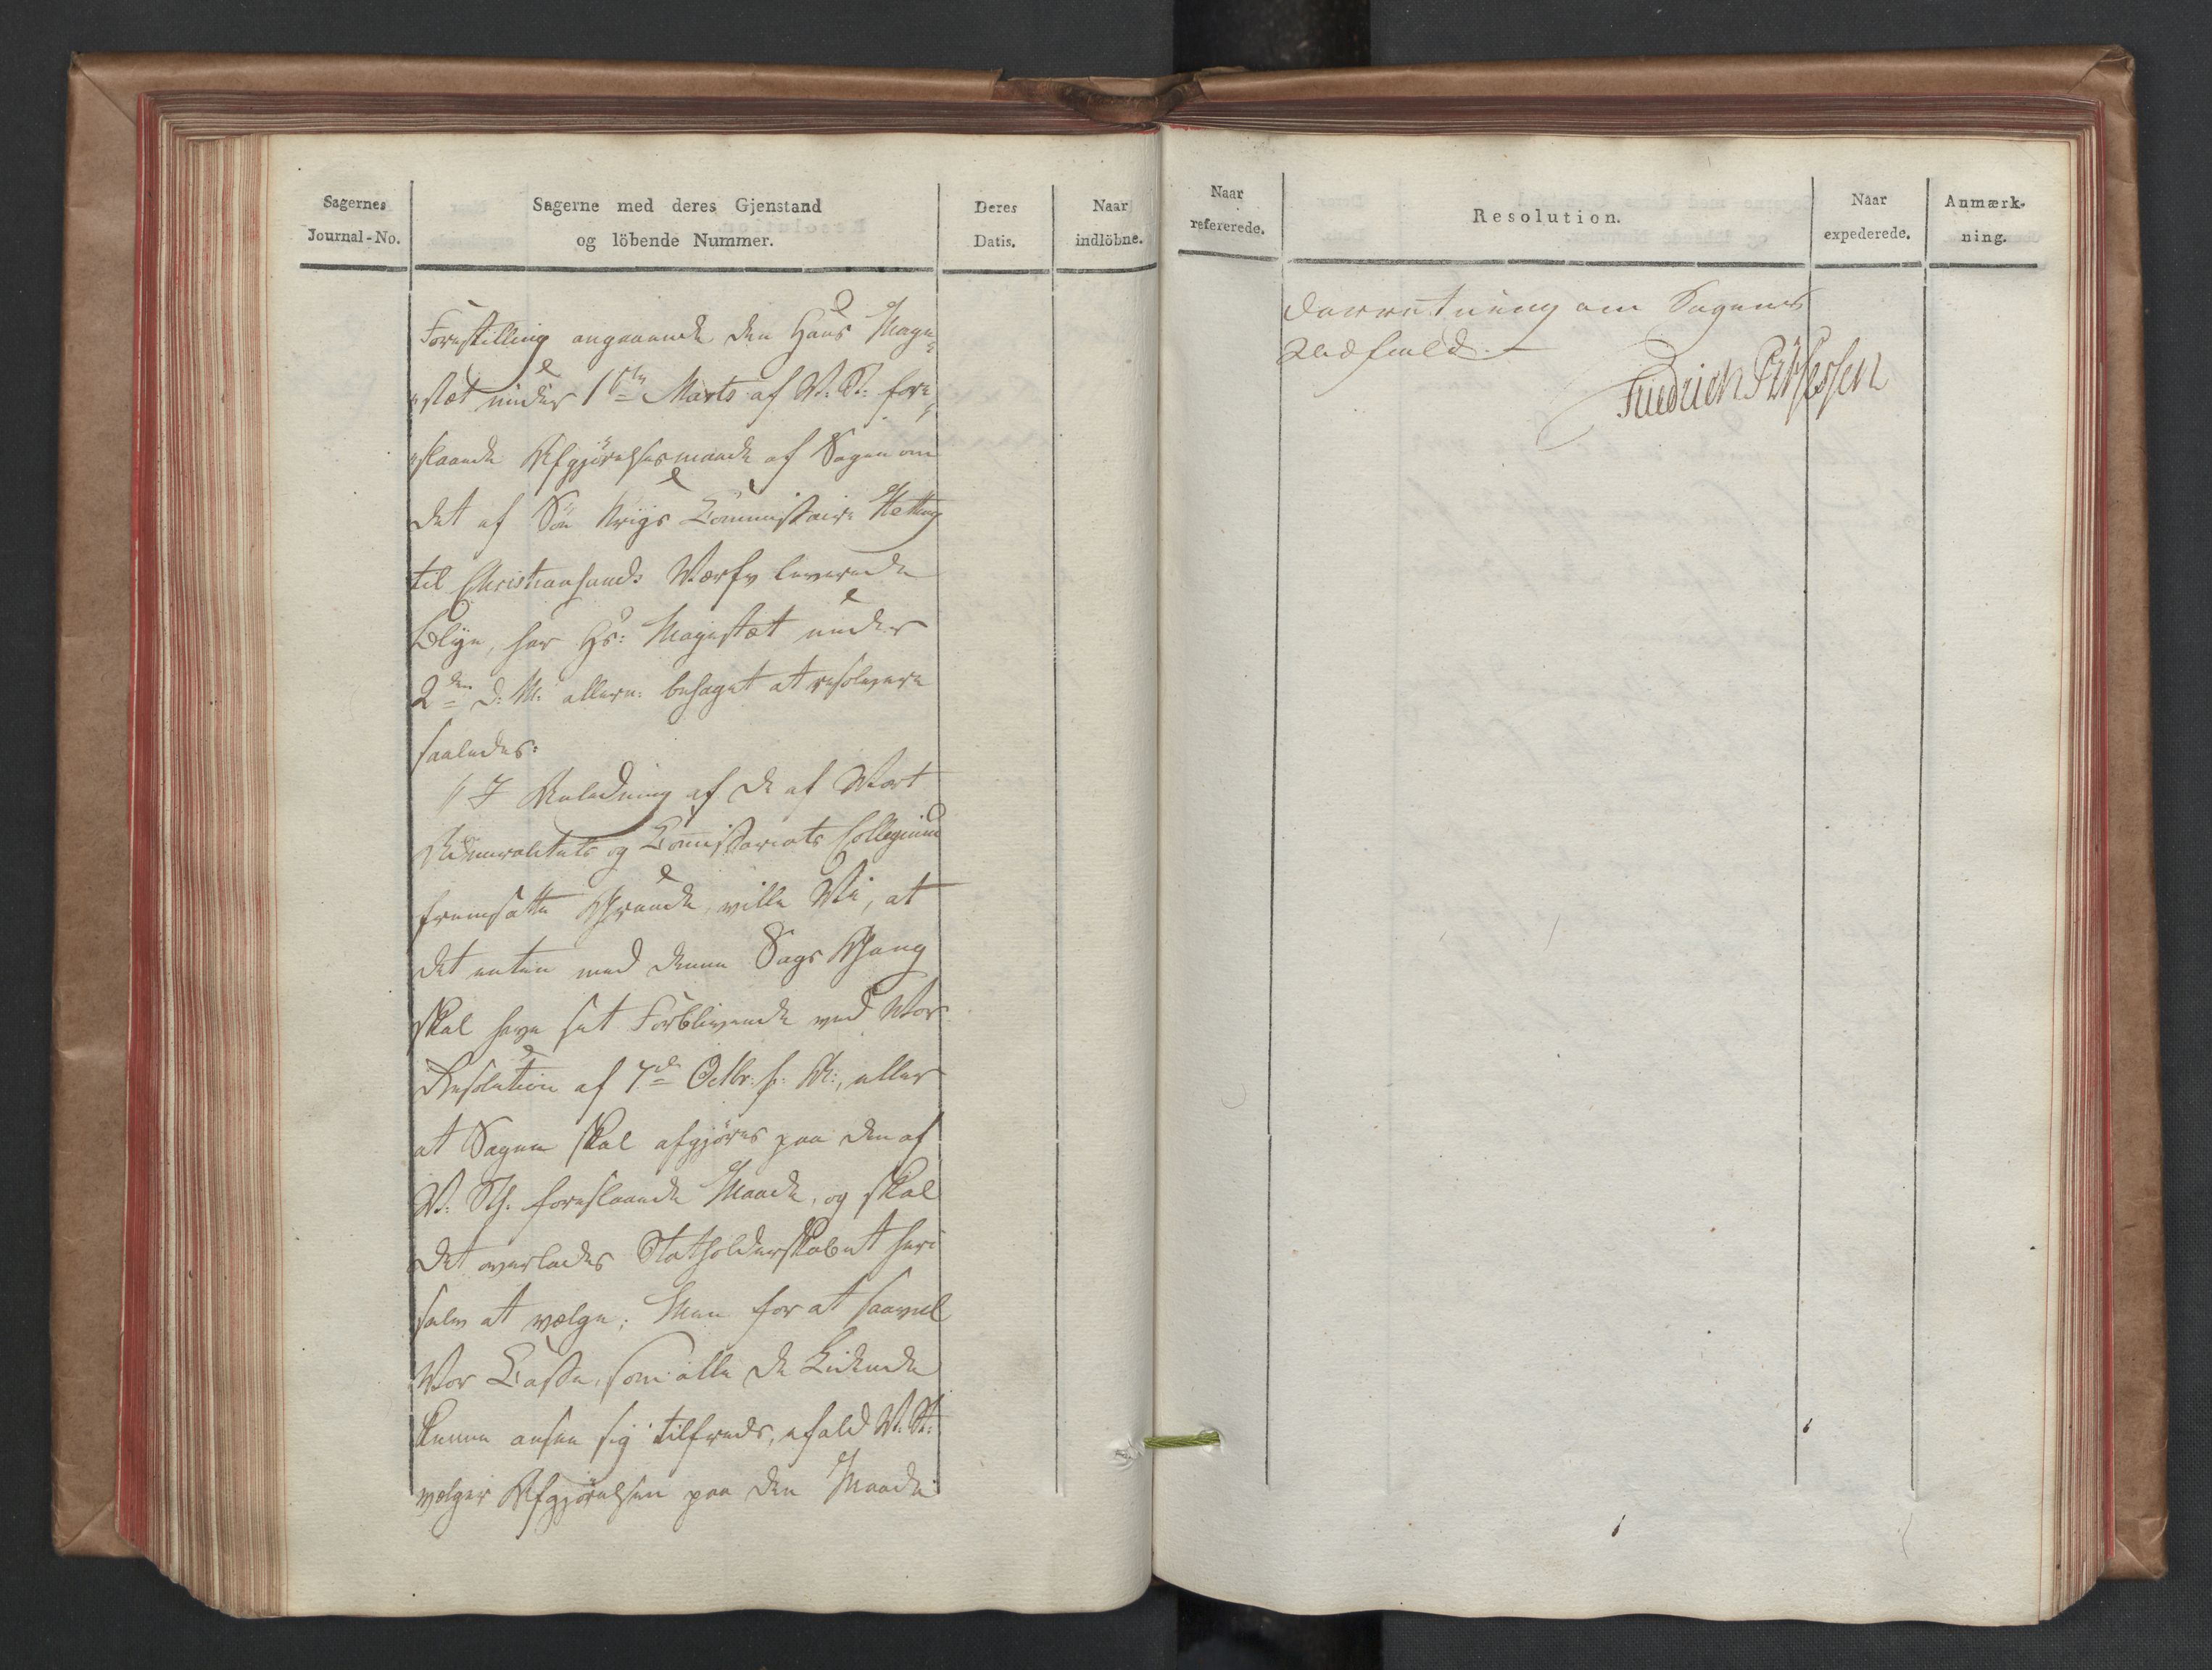 Sagernes
Journal-No.
Sagerne med deres Gjenstand
og löbende Nummer.
Deres
Datis.
Naar
indlöbne.
Forestilling angaaende den Hans Maje-
"stæt under 1ste Marts af V. St. fore-
"slaaede Afgjörelsesmaade af Sagen om
det af Söe Krigs Commissair Hetting
til Christiansands Værft leverede
Blye, har Hs: Majestæt under
2den d: M: allern: behaget at resolvere
saaledes:
"I Anledning af de af Vort
Admiralitets og Commissariats Collegium
fremsatte Grunde, ville Vi, at
det enten med denne Sags Gang
skal have sit Forblivende ved Vor
Resolution af 7de Octbr. f: A:, eller
at Sagen skal afgjöres paa den af
V: St. foreslaaede Maade, og skal
det overlades Statholderskabet heri
selv at vælge; Men for at saavel
Vor Casse, som alle de Lidende
kunne ansee sig tilfreds, ifald V. St.
vælger Afgjörelsen paa den Maade
Naar
refererede.
Resolution.
Naar
expederede.
Anmærk-
ning.
Underretning om Sagens
Udfald.
Friedrich Petersen